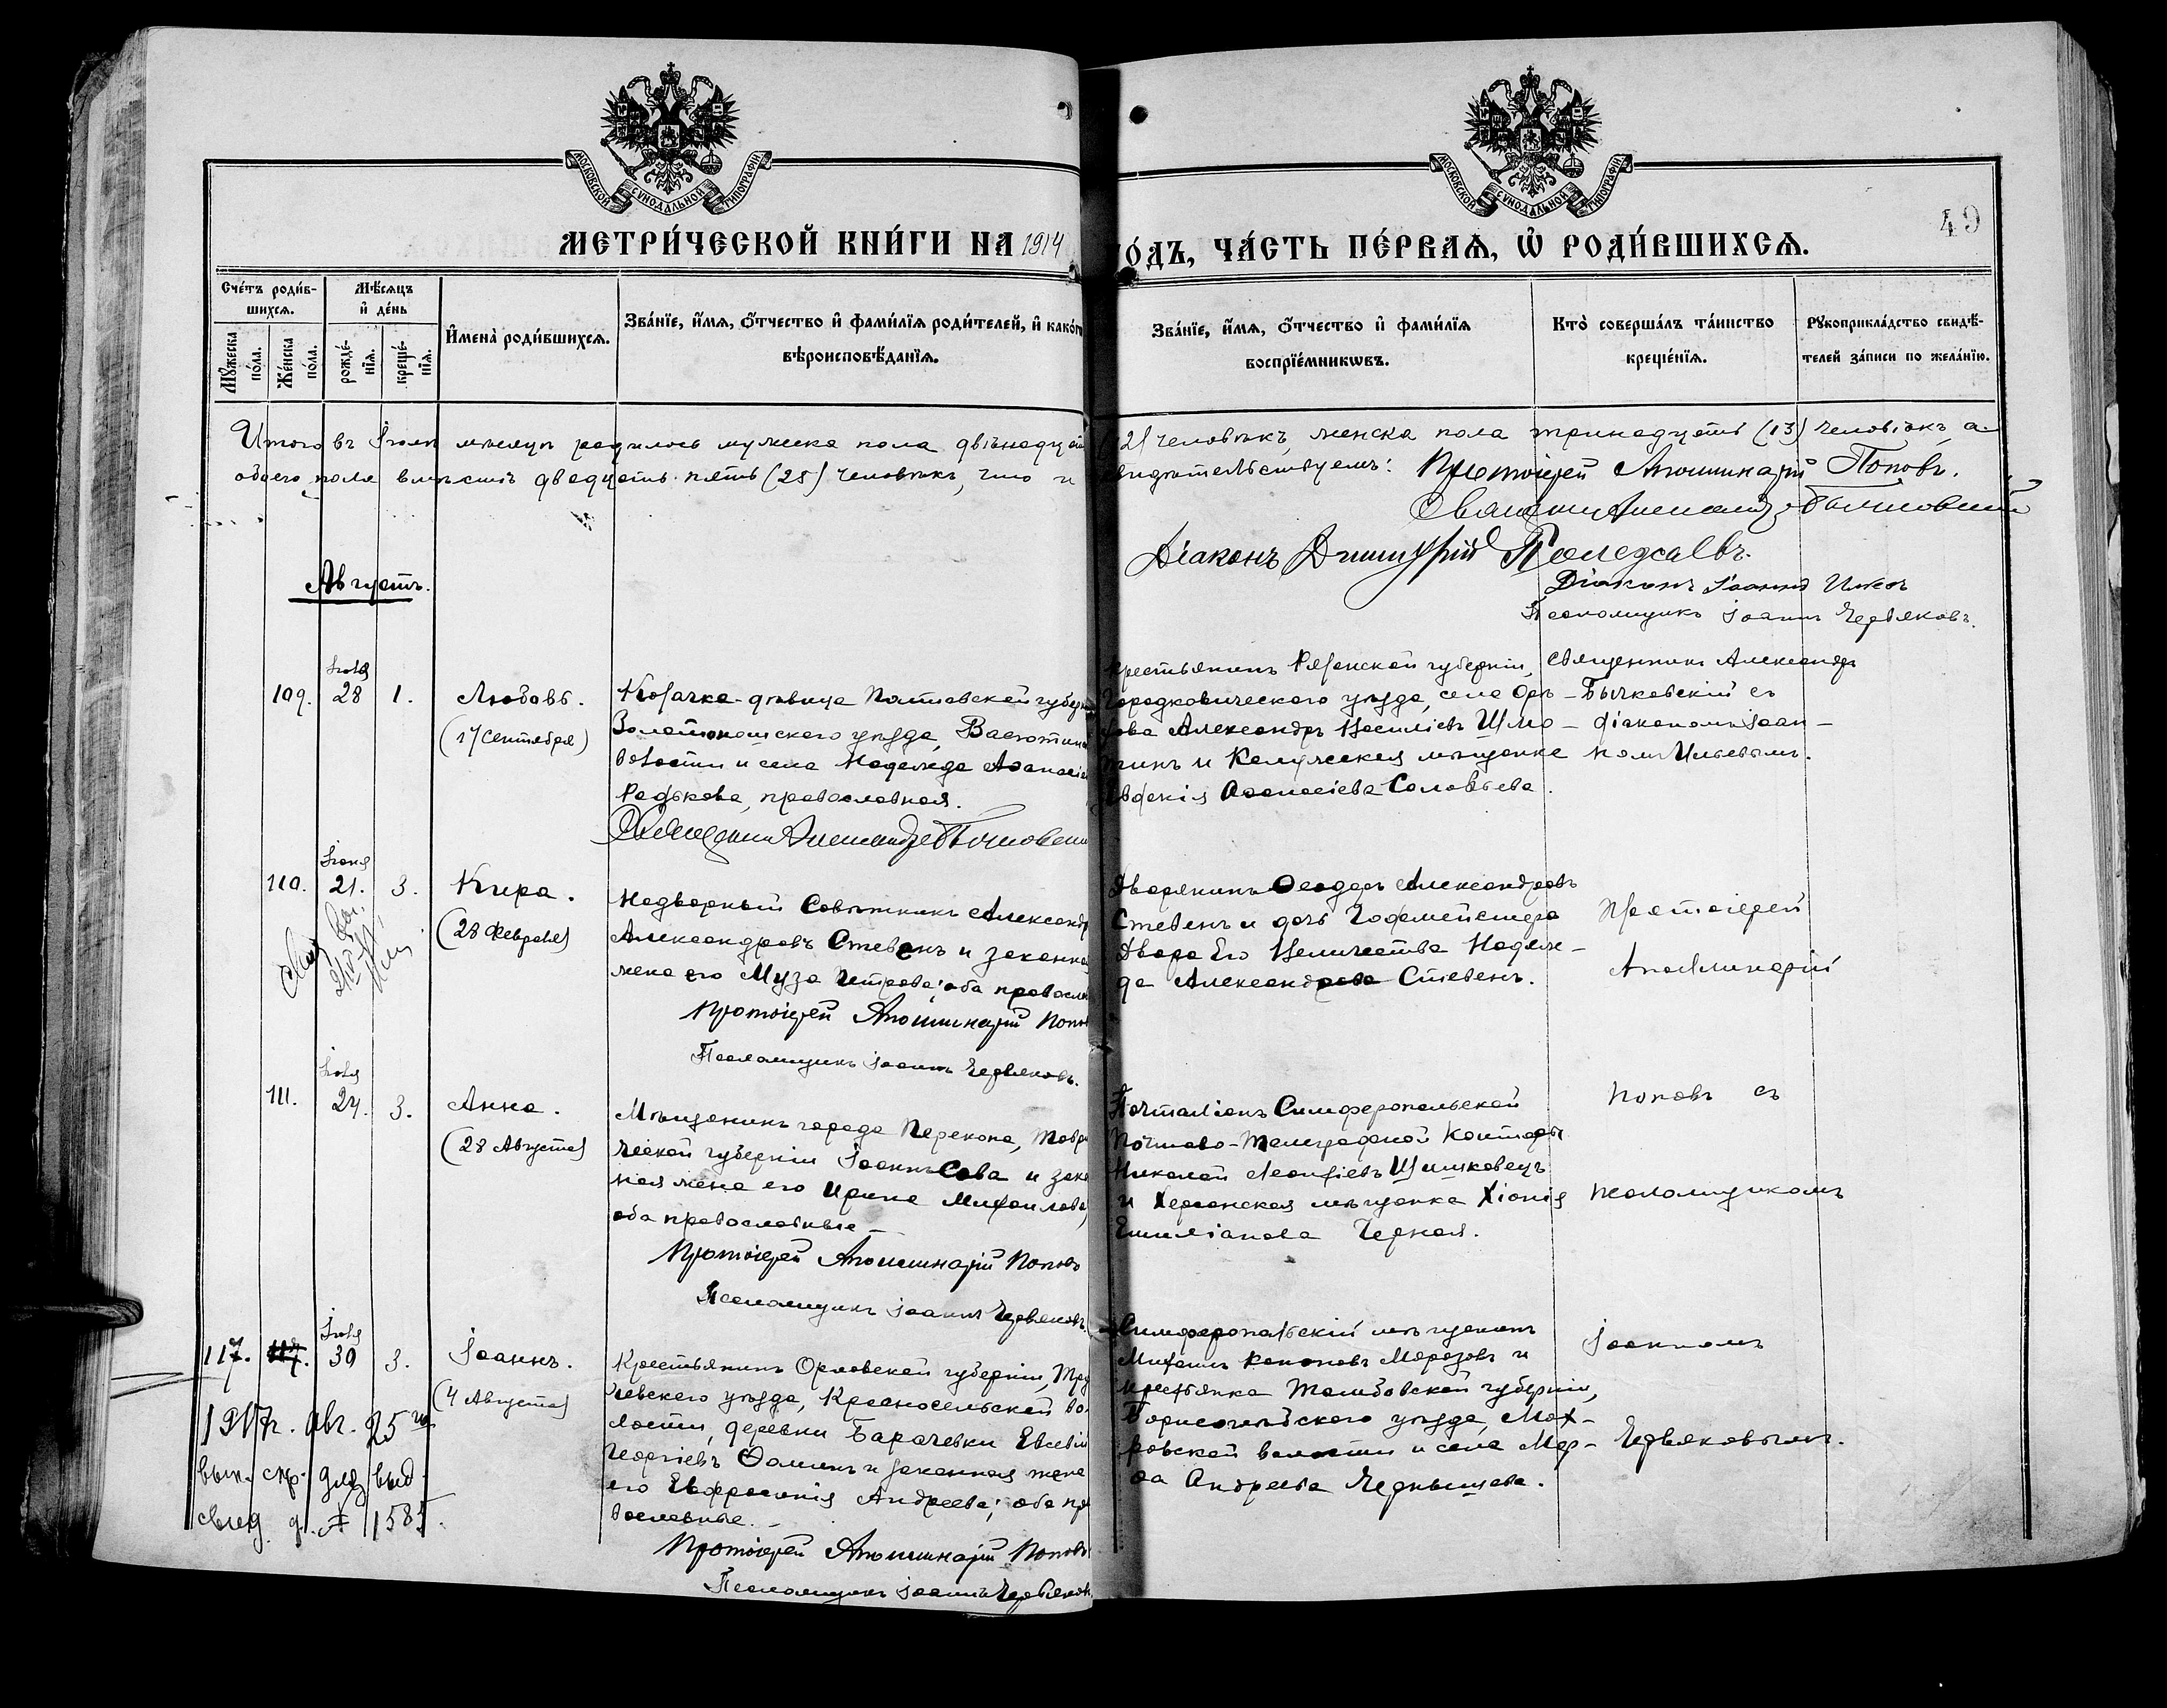 МОСКОВСКОЙ СѴНОДАЛЬНОЙ ТИПОГРАФІИ
МОСКОВСКОЙ СѴНОДАЛЬНОЙ ТИПОГРАФІИ
49
МЕТРИ́ЧЕСКОЙ КНИ́ГИ НА 1914
ГО́ДЪ, ЧА́СТЬ ПЕ́РВАѦ, Ѡ҆ РОДИ́ВШИХСѦ.
Сче́тъ роди́в-
шихсѧ.
Мѣ́сѧцъ
и҆ де́нь
Мꙋ́жеска
по́ла.
Же́нска
по́ла.
рожде́-
нїѧ.
креще́-
нїѧ.
И҆мена̀ роди́вшихсѧ.
Зва́нїе, и҆́мѧ, ѻ҆́тчество и҆ фами́лїѧ роди́телей, и҆ како́гѡ
вѣроисповѣ́данїѧ.
Зва́нїе, и҆́мѧ, ѻ҆́тчество и҆ фами́лїѧ
воспрїе́мникѡвъ.
Кто̀ соверша́лъ та́инство
креще́нїѧ.
Рꙋкоприкла́дство свидѣ́-
телей за́писи по жела́нїю.
Итого въ Іюлѣ мѣсяцѣ родилось мужеска пола двѣнадцать
(12) человѣкъ, женска пола тринадцать (13) человѣкъ, а
обоего пола вмѣстѣ двадцать пять (25) человѣкъ, что и
свидѣтельствуемъ: Протоіерей Аполлинарій Поповъ.
Священникъ Александръ Бычковскій
Діаконъ Димитрій
Діаконъ Іоаннъ
Псаломщикъ Іоаннъ Червяковъ.
Августъ.
109.
Іюля
28
1.
Любовь.
(17 Сентября)
Козачка-дѣвица Полтавской губерн
Золотоношскаго уѣзда,
волости и села Надежда Аѳанасіе
Радькова, православная.
Священникъ Александръ Бычковскій
Крестьянинъ Рязанской губерніи,
уѣзда, села Орѣ-
хова Александръ Василіевъ Шмо-
тинъ и Калужская мѣщанка
Евфкнія Аѳанасіева Соловьева.
Священникъ Александръ
Бычковскій съ
діакономъ Іоан-
номъ Ильевымъ.
110.
Іюня
21.
3.
Кира.
(28 Февраля)
Надворный Совѣтникъ Александр
Александровъ Стевенъ и законна
жена его Муза Петрова; оба православ
Протоіерей Аполлинарій Поповъ
Псаломщикъ Іоаннъ Червяковъ.
Дворянинъ Ѳеодоръ Александровъ
Стевенъ и дочь Гофмейстера
Двора Его Величества Надеж-
да Александрова Стевенъ.
Протоіерей
Аполлинарій
111.
Іюля
24.
3.
Анна.
(28 Августа)
Мѣщанинъ города Перекопа, Таври
ческой губерніи Іоаннъ Сова и зако
ная жена его Ирина Михаилова,
оба православные
Протоіерей Аполлинарій Поповъ
Псаломщикъ Іоаннъ Червяковъ.
Почталіонъ Симферопольской
Почтово-Телеграфной Конторы
Николай Леонтіевъ Шишковецъ
и Херсонская мѣщанка Хіонія
Емиліанова Черная.
Поповъ съ
псаломщикомъ
117.
Іюля
30
3.
Іоаннъ.
(4 Августа)
Крестьянинъ Орловской губерніи, Труб
чевскаго уѣзда, Красносельской во-
лости, деревни Барачевки Евсевій
Георгіевъ Ѳоминъ и законная жена
его Евфросинія Андреева; оба пра
вославные.
Протоіерей Аполлинарій Поповъ
Псаломщикъ Іоаннъ Червяковъ
Симферопольскій мѣщанинъ
Михаилъ Кононовъ Морозовъ и
крестьянка Тамбовской губерніи,
Борисоглѣбскаго уѣзда,
ровской волости и села Мар-
ѳа Андреева Чернышева.
Іоанномъ
Червяковымъ.
1917г. авг. 25го
вып. спр. для выд.
свид. д. № 1585.